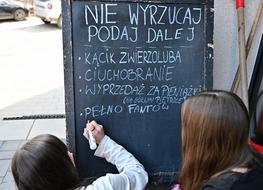 NIE WYRZUCAJ
PODAJ DALEJ
• KĄCIK ZWIERZOLUBA
• CIUCHOBRANIE
• WYPRZEDAŻ ZA PIENIĄŻKI
(NA GÓRNYM PIĘTRZE)
• PEŁNO FANTÓW